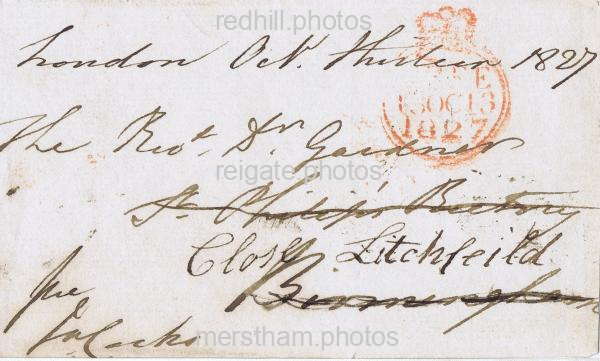 redhill.photos
London Octr. thirteen 1827
FREE
13OC13
1827
The Revd. Dr. Gardner
reigate.photos
St. Philip's Rectory
Close Litchfeild
Birmingham
free
Js. Cocks
merstham.photos